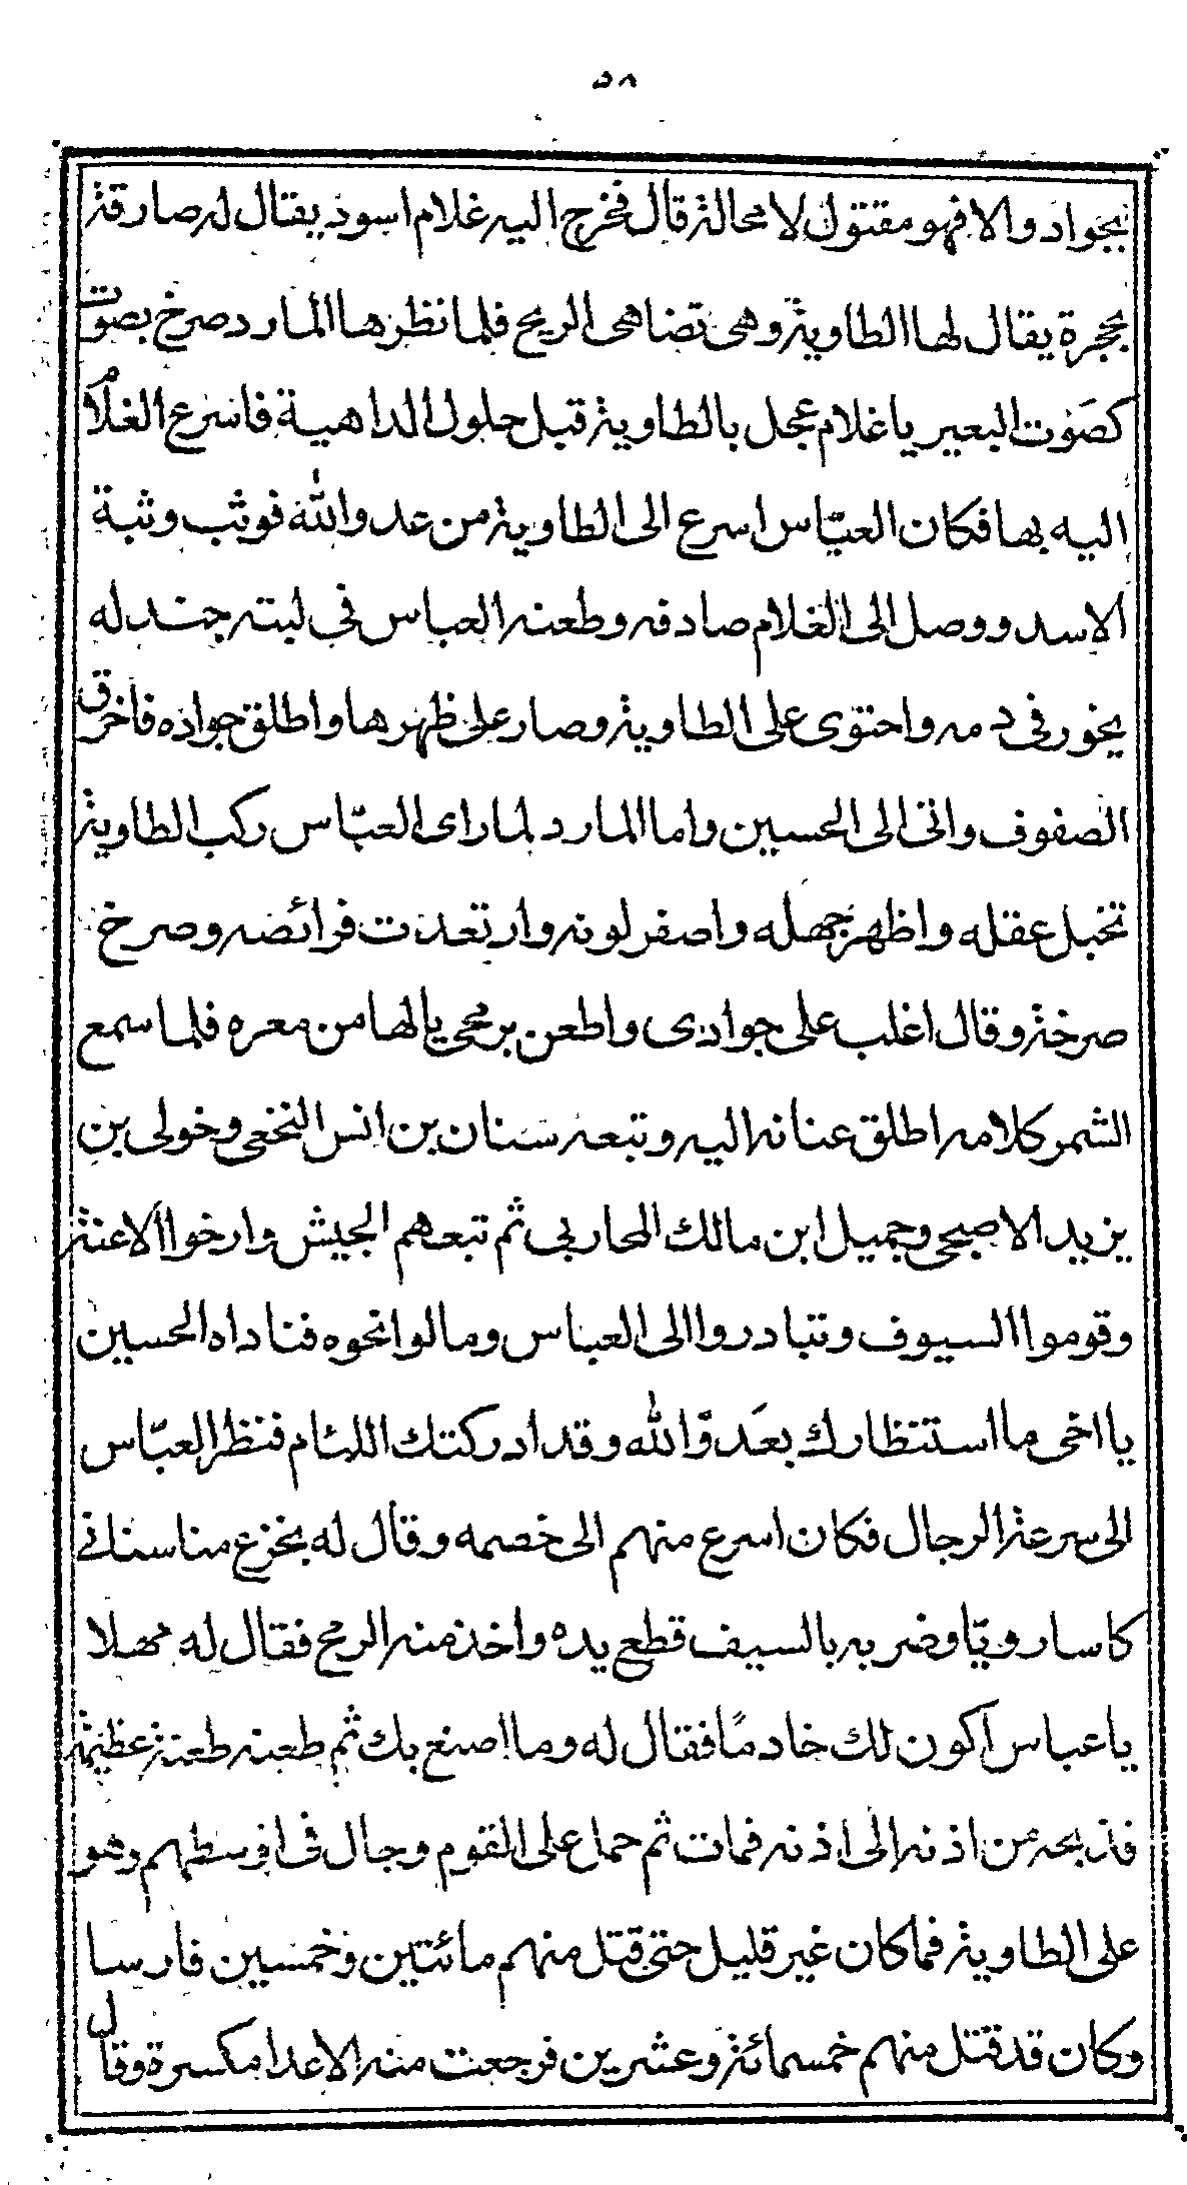 ٥٨
بجواد والا فهو مقتول لا محالة قال فخرج اليه غلام اسود يقال له صارقة
بحجرة يقال لها الطاوية وهى تضاهى الريح فلما نظرها المارد صرخ بصوت
كصوت البعير يا غلام عجل بالطاوية قبل حلول الداهية فاسرع الغلام
اليه بها فكان العبّاس اسرع الى الطاوية من عدو الله فوثب وثبة
الاسد ووصل الى الغلام صادفه وطعنه العباس فى لبته جندله
يخور فى دمه واحتوى على الطاوية وصار على ظهرها واطلق جواده فاخرق
الصفوف واتى الى الحسين واما المارد لما راى العبّاس ركب الطاوية
تخبل عقله واظهر جهله واصفر لونه وارتعدت فرائضه وصرخ
صرخة وقال اغلب على جوادى واطعن برمحى يا لها من معره فلما سمع
الشمر كلامه اطلق عنانه اليه وتبعه سنان بن انس النخعى وخولى بن
يزيد الاصبحى وجميل ابن مالك المحاربى ثم تبعهم الجيش وارخوا الاعنة
وقوموا السيوف وتبادروا الى العباس ومالوا نحوه فناداه الحسين
يا اخى ما استنظارك بعَدوّ الله وقد ادركتك اللئام فنظر العبّاس
الى سرعة الرجال فكان اسرع منهم الى خصمه وقال له بخزع منا سنانى
كاسا رويّا وضربه بالسيف قطع يده واخذ منه الرمح فقال له مهلا
يا عباس اكون لك خادمًا فقال له وما اصنع بك ثم طعنه طعنة عظيمة
فذبحه من اذنه الى اذنه فمات ثم حمل على القوم وجال فى اوسطهم وهو
على الطاوية فما كان غير قليل حتى قتل منهم مائتين وخمسين فارسا
وكان قد قتل منهم خمسمائة وعشرين فرجعت منه الاعدا مكسرة وقال